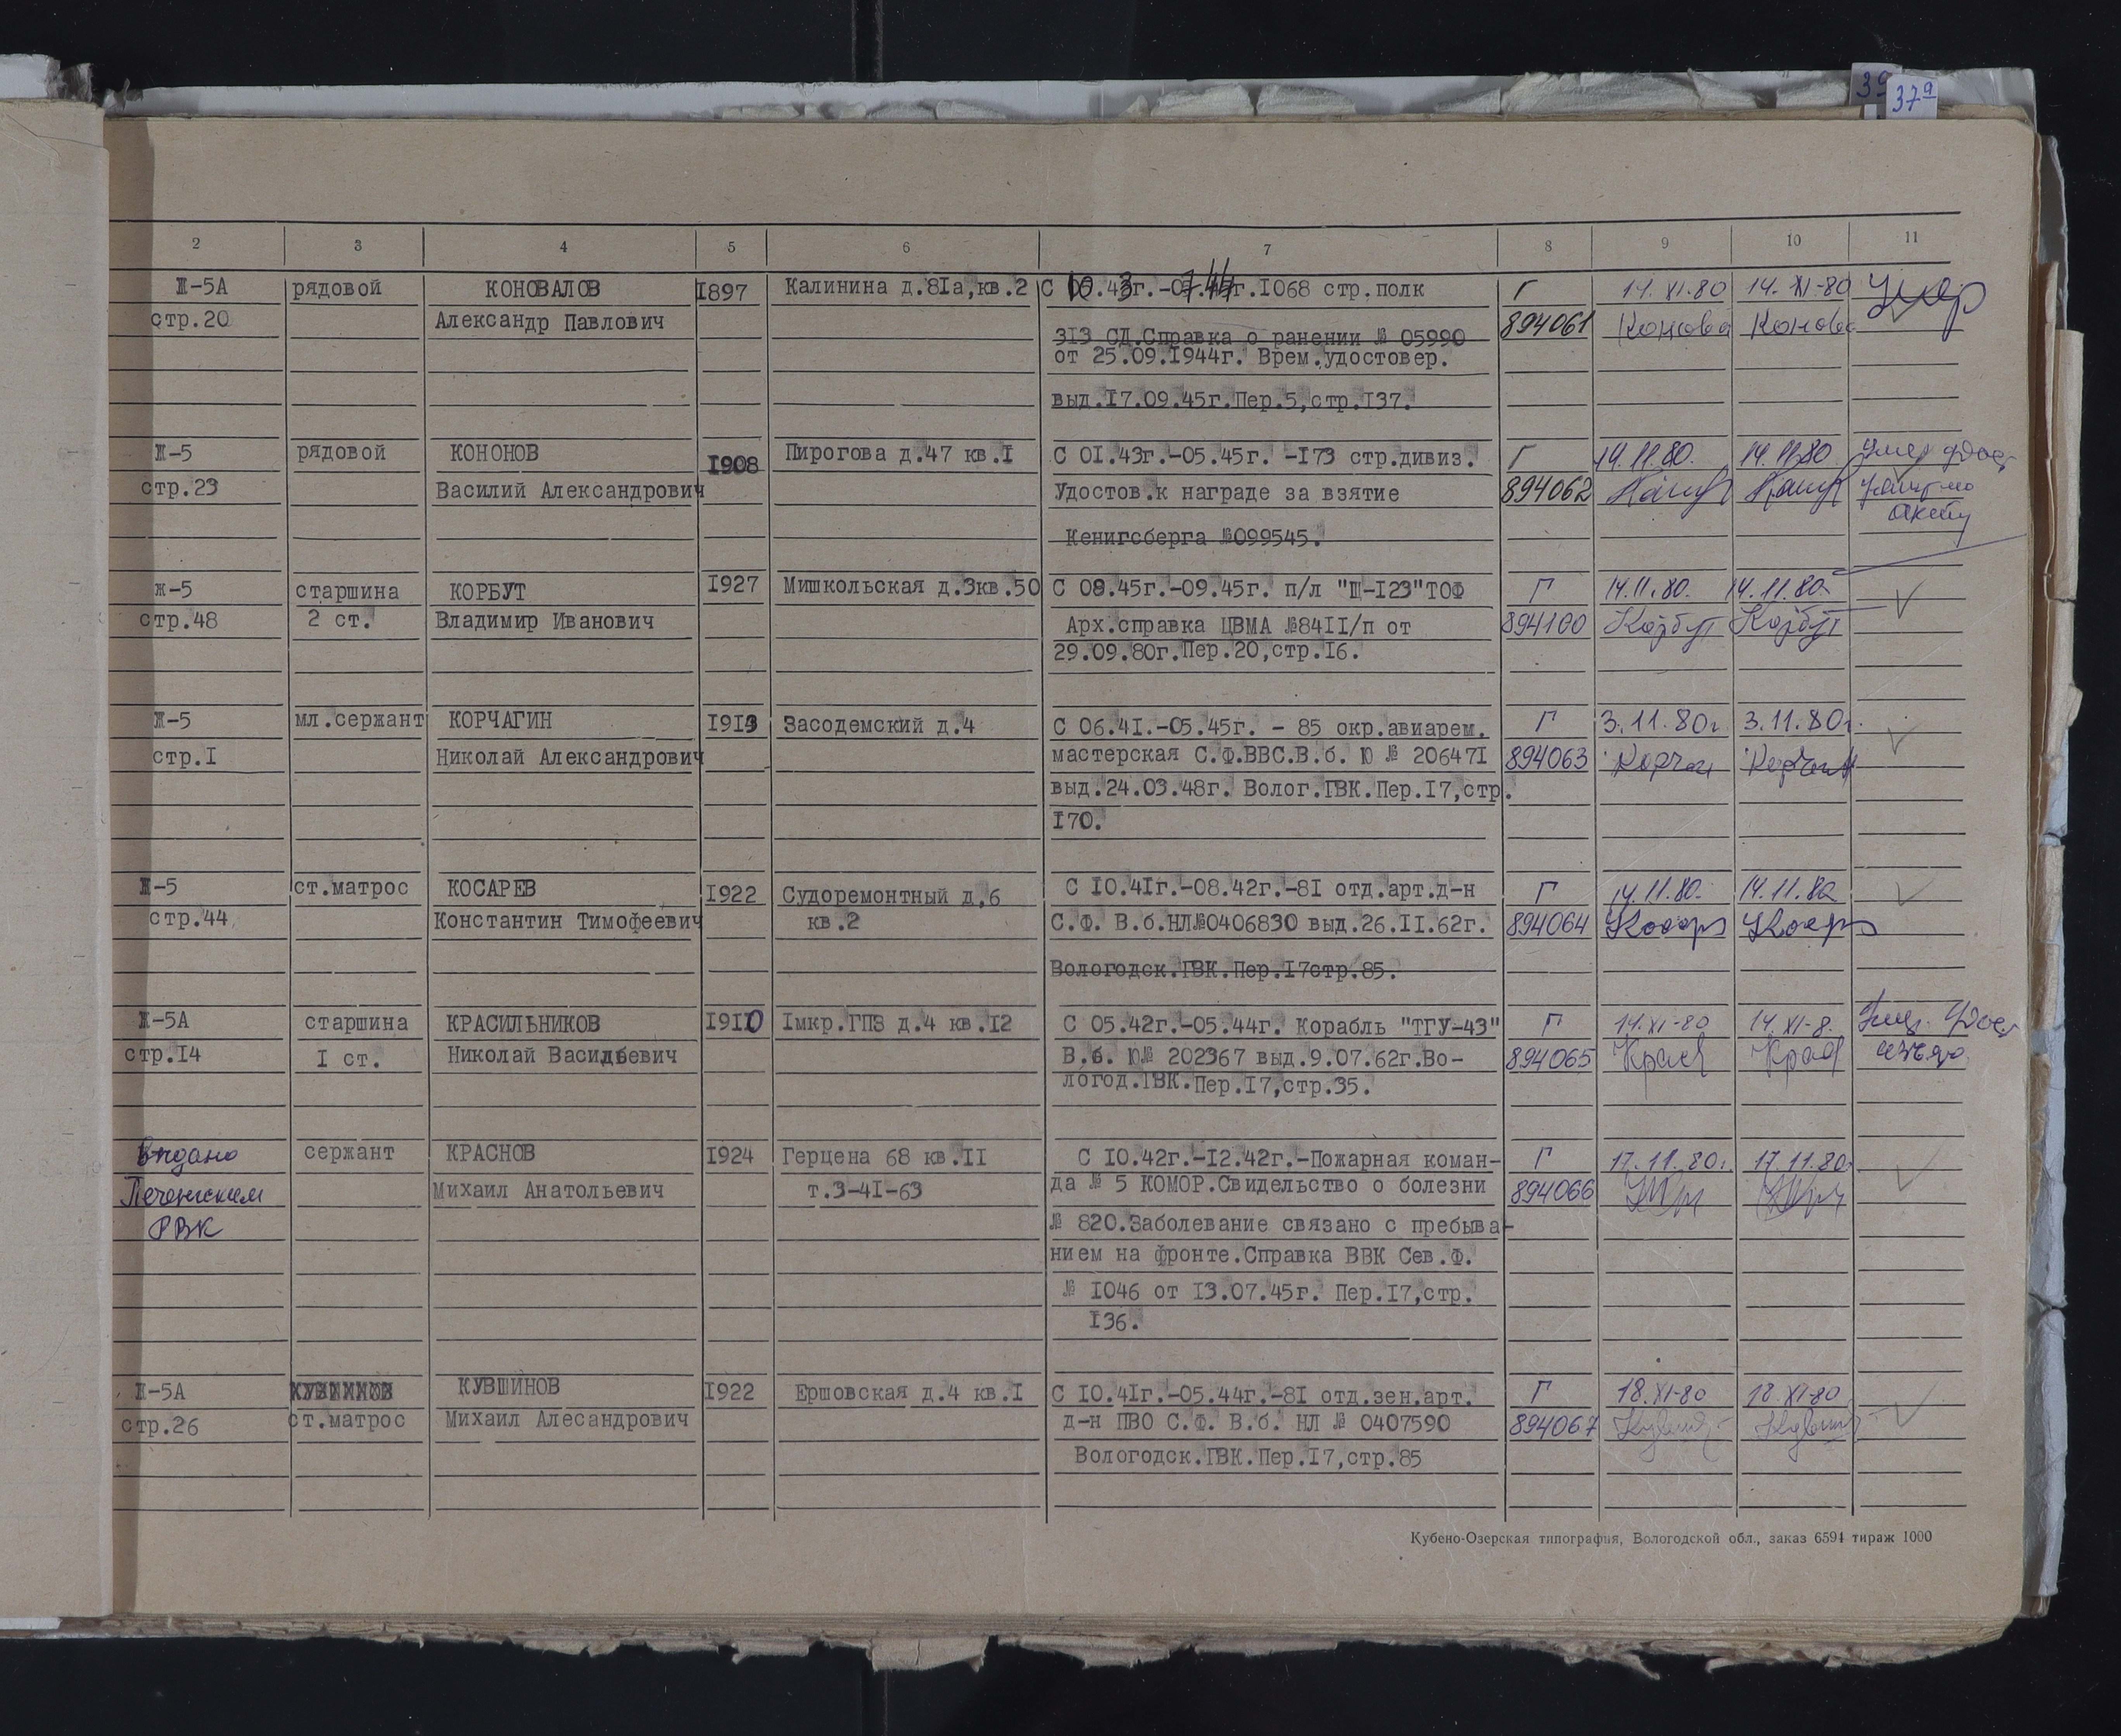 39
37а
2 3 4 5 6 7 8 9 10 11
Ж-5А рядовой КОНОВАЛОВ I897 Калинина д.8Iа,кв.2 С 10.43г.-07.44г.I068 стр.полк Г 14.XI.80 14.XI-80 Умер
стр.20 Александр Павлович 3I3 СД.Справка о ранении № 05990 894061 Конова Конова
от 25.09.I944г. Врем.удостовер.
выд.I7.09.45г.Пер.5,стр.I37.
Ж-5 рядовой КОНОНОВ I908 Пирогова д.47 кв.I С 0I.43г.-05.45г. -I73 стр.дивиз. Г 14.11.80. 14.11.80 Умер
стр.23 Василий Александрович Удостов.к награде за взятие 894062
акту
Кенигсберга №099545.
Ж-5 старшина КОРБУТ I927 Мишкольская д.3кв.50 С 08.45г.-09.45г. п/л "Щ-I23"ТОФ Г 14.11.80. 14.11.80.
стр.48 2 ст. Владимир Иванович Арх.справка ЦВМА №84II/п от 894100 Корбут Корбут
29.09.80г.Пер.20,стр.I6.
Ж-5 мл.сержант КОРЧАГИН I913 Засодемский д.4 С 06.4I.-05.45г. - 85 окр.авиарем. Г 3.11.80г. 3.11.80г.
стр.I Николай Александрович мастерская С.Ф.ВВС.В.б. Ю № 20647I 894063 Корчаг
выд.24.03.48г. Волог.ГВК.Пер.I7,стр.
I70.
Ж-5 ст.матрос КОСАРЕВ I922 Судоремонтный д.6 С I0.4Iг.-08.42г.-8I отд.арт.д-н Г 14.11.80. 14.11.80
стр.44 Константин Тимофеевич кв.2 С.Ф. В.б.НЛ№0406830 выд.26.II.62г. 894064
Вологодск.ГВК.Пер.I7стр.85.
Ж-5А старшина КРАСИЛЬНИКОВ I910 Iмкр.ГПЗ д.4 кв.I2 С 05.42г.-05.44г. Корабль "ТГУ-43" Г 14.XI-80 14.XI-8.
стр.I4 I ст. Николай Васильевич В.б. Ю№ 202367 выд.9.07.62г.Во- 894065 Крас Крас
логод.ГВК.Пер.I7,стр.35.
Выдано сержант КРАСНОВ I924 Герцена 68 кв.II С I0.42г.-I2.42г.-Пожарная коман- Г 17.11.80г. 17.11.80г
Печенгским Михаил Анатольевич т.3-4I-63 да № 5 КОМОР.Свидельство о болезни 894066
РВК № 820.Заболевание связано с пребыва-
нием на фронте.Справка ВВК Сев.Ф.
№ I046 от I3.07.45г. Пер.I7,стр.
I36.
Ж-5А КУВШИНОВ I922 Ершовская д.4 кв.I С I0.4Iг.-05.44г.-8I отд.зен.арт. Г 18.XI-80 18.XI-80
стр.26 ст.матрос Михаил Алесандрович д-н ПВО С.Ф. В.б. НЛ № 0407590 894067
Вологодск.ГВК.Пер.I7,стр.85
Кубено-Озерская типография, Вологодской обл., заказ 6594 тираж 1000